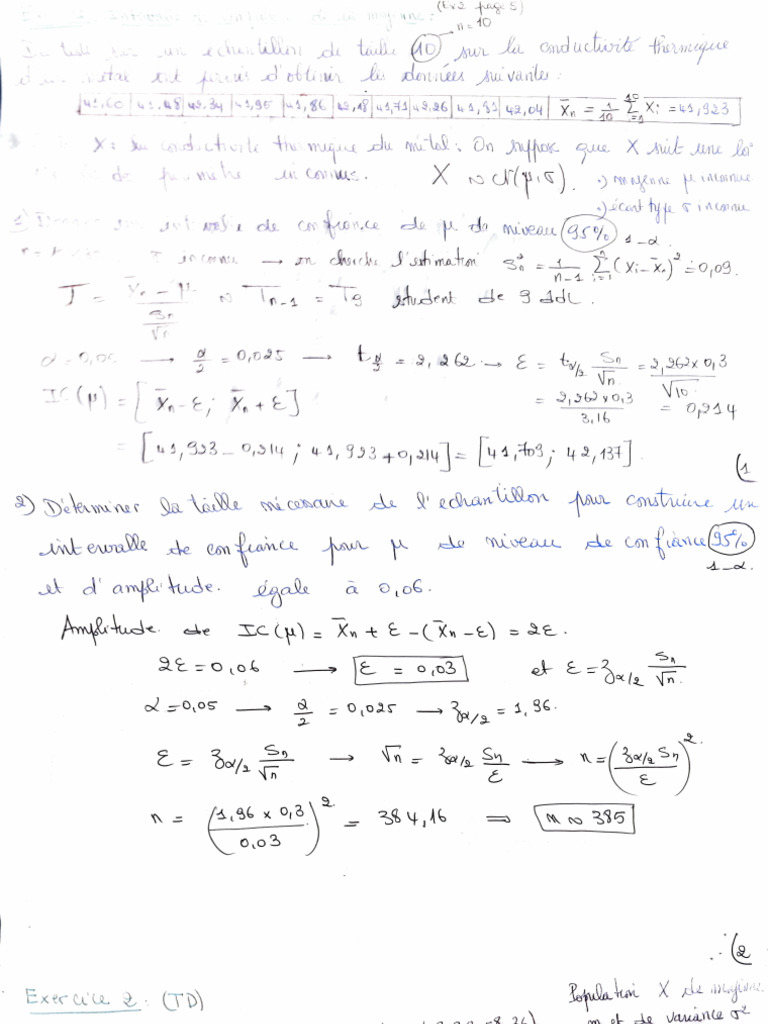 Intervalle de confiance de la moyenne : (Ex2 page 5)
n=10
un échantillon de taille 10 sur la conductivité thermique
d'un métal ont permis d'obtenir les données suivantes :
41,60 | 41,48 | 42,34 | 41,95 | 41,86 | 42,18 | 41,71 | 42,26 | 41,81 | 42,04 | X̄n = 1/10 Σ(i=1→10) Xi = 41,923
X : la conductivité thermique du métal : On suppose que X suit une loi
de paramètre inconnus. X ~ N(μ, σ). •) moyenne μ inconnue
•) écart type σ inconnu
1) intervalle de confiance de μ de niveau 95%
1-α
inconnu → on cherche l'estimation Sn² = 1/(n-1) Σ(i=1→n) (xi - x̄n)² = 0,09.
T = (X̄n - μ)/(Sn/√n) ~ Tn-1 = T9 student de 9 ddl.
α = 0,05 → α/2 = 0,025 → tα/2 = 2,262 → ε = tα/2 Sn/√n = (2,262 x 0,3)/√10
= (2,262 x 0,3)/3,16 = 0,214
IC(μ) = [X̄n - ε ; X̄n + ε]
= [41,923 - 0,214 ; 41,923 + 0,214] = [41,709 ; 42,137].
(1
2) Déterminer la taille nécessaire de l'échantillon pour construire un
intervalle de confiance pour μ de niveau de confiance 95%
1-α
et d'amplitude. égale à 0,06.
Amplitude de IC(μ) = X̄n + ε - (X̄n - ε) = 2ε.
2ε = 0,06 → ε = 0,03 et ε = zα/2 Sn/√n.
α = 0,05 → α/2 = 0,025 → zα/2 = 1,96.
ε = zα/2 Sn/√n → √n = zα/2 Sn/ε → n = (zα/2 Sn/ε)².
n = ((1,96 x 0,3)/0,03)² = 384,16 ⇒ n ~ 385
(2
Exercice 2 : (TD)
Population X de moyenne
m et de variance σ²